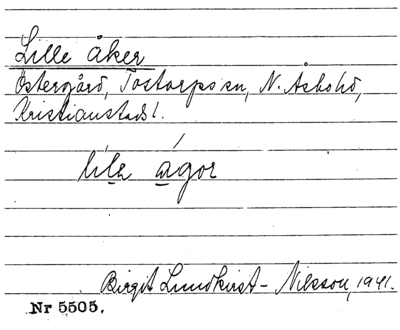 Lille åker
Östergård, Tostarps sn, N. Åsbo hd,
Kristianstads l.
lila ågor
Birgit Lundkvist-Nilsson, 1941.
Nr 5505.